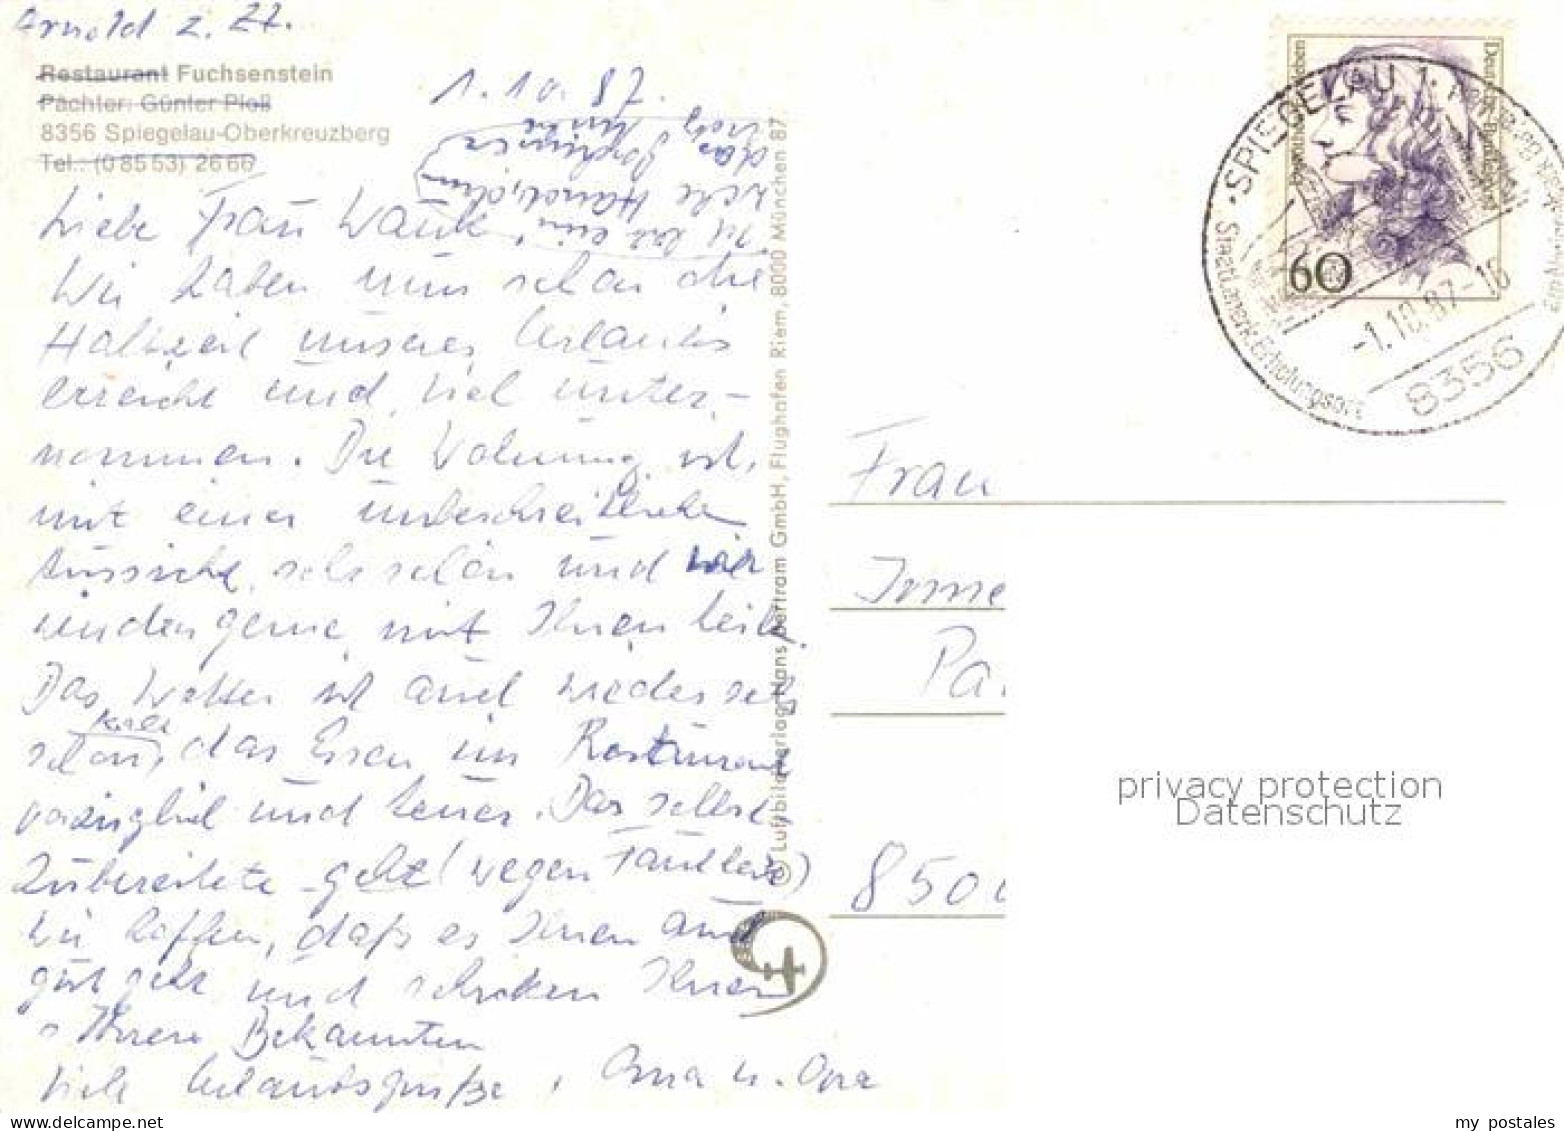 Arnold z. Zt.
Restaurant Fuchsenstein
Pächter: Günter Ploß
8356 Spiegelau-Oberkreuzberg
Tel.: (0 85 53) 26 66
1.10.87.
Liebe Frau Wank
Wir haben nun schon die
Halbzeit unseres Urlaubs
erreicht und viel unter-
nommen. Die Wohnung ist,
mit einer unbeschreiblichen
Aussicht, sehr schön und wir
würden gerne mit Ihnen teilen.
Das Wetter ist auch wieder sehr
kalt
schön, das Essen im Restaurant
vorzüglich und teuer. Das selbst
Zubereitete geht (wegen Faulheit)
Wir hoffen, daß es Ihnen auch
gut geht und schicken Ihnen
u. Ihren Bekannten
viele Urlaubsgrüße, Oma u. Opa
© Luftbildverlag Hans Bertram GmbH, Flughafen Riem, 8000 München 87
Deutsche Bundespost
60
SPIEGELAU 1
Staatl. anerk. Erholungsort
-1.10.87-16
8356
Frau
Irme
Pa
850
privacy protection
Datenschutz
my postales